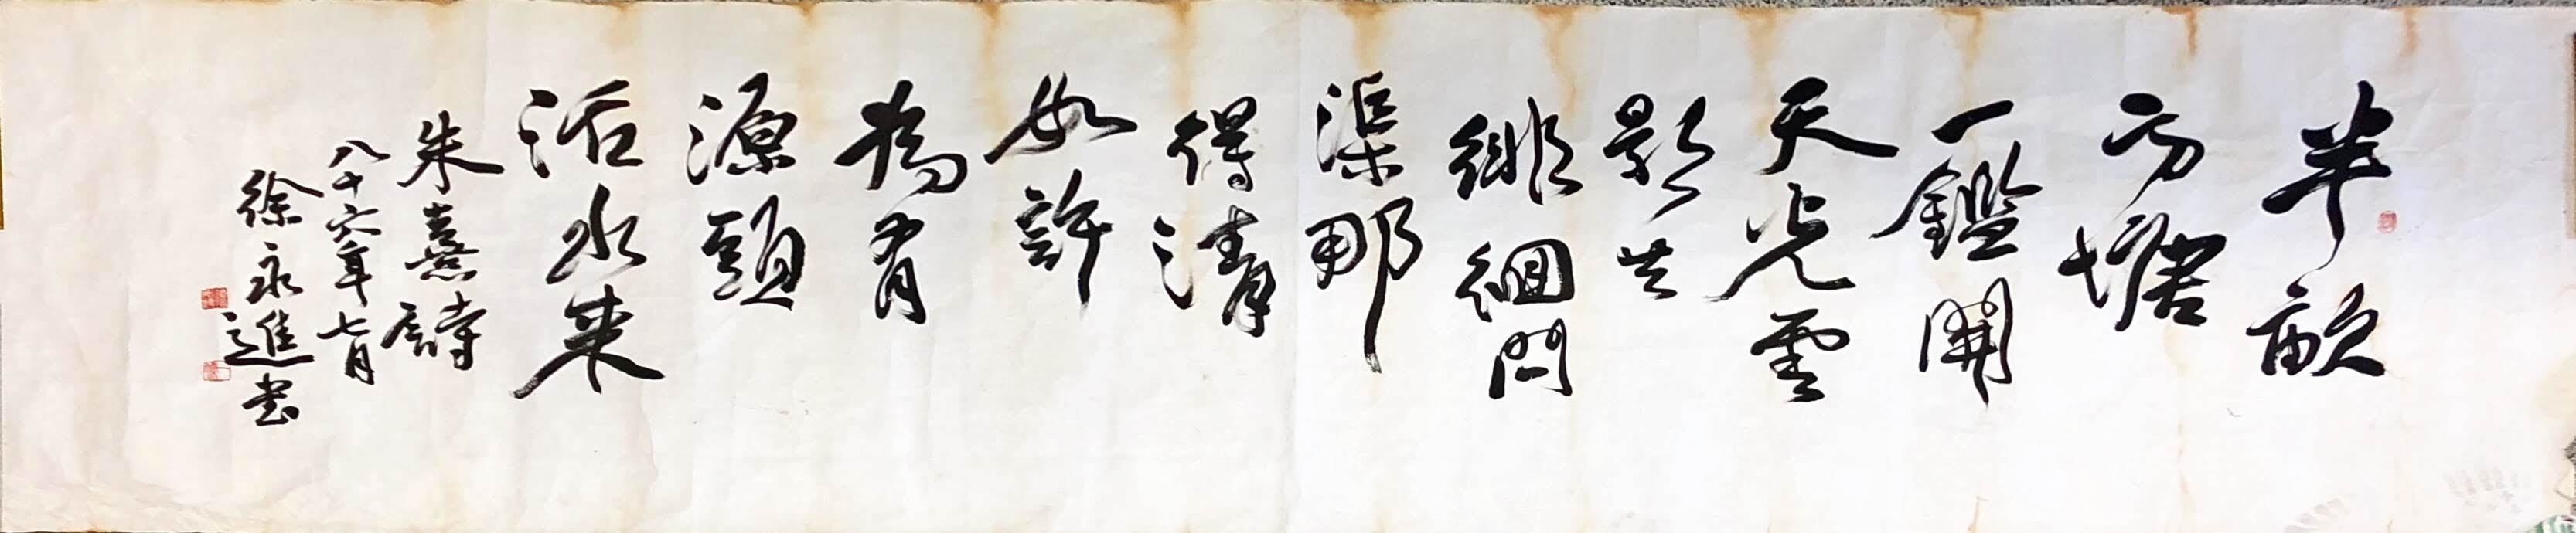 半畝
方塘
一鑑開
天光雲
影共
徘徊問
渠那
得清
如許
為有
源頭
活水来
朱熹詩
八十六年七月
徐永進书